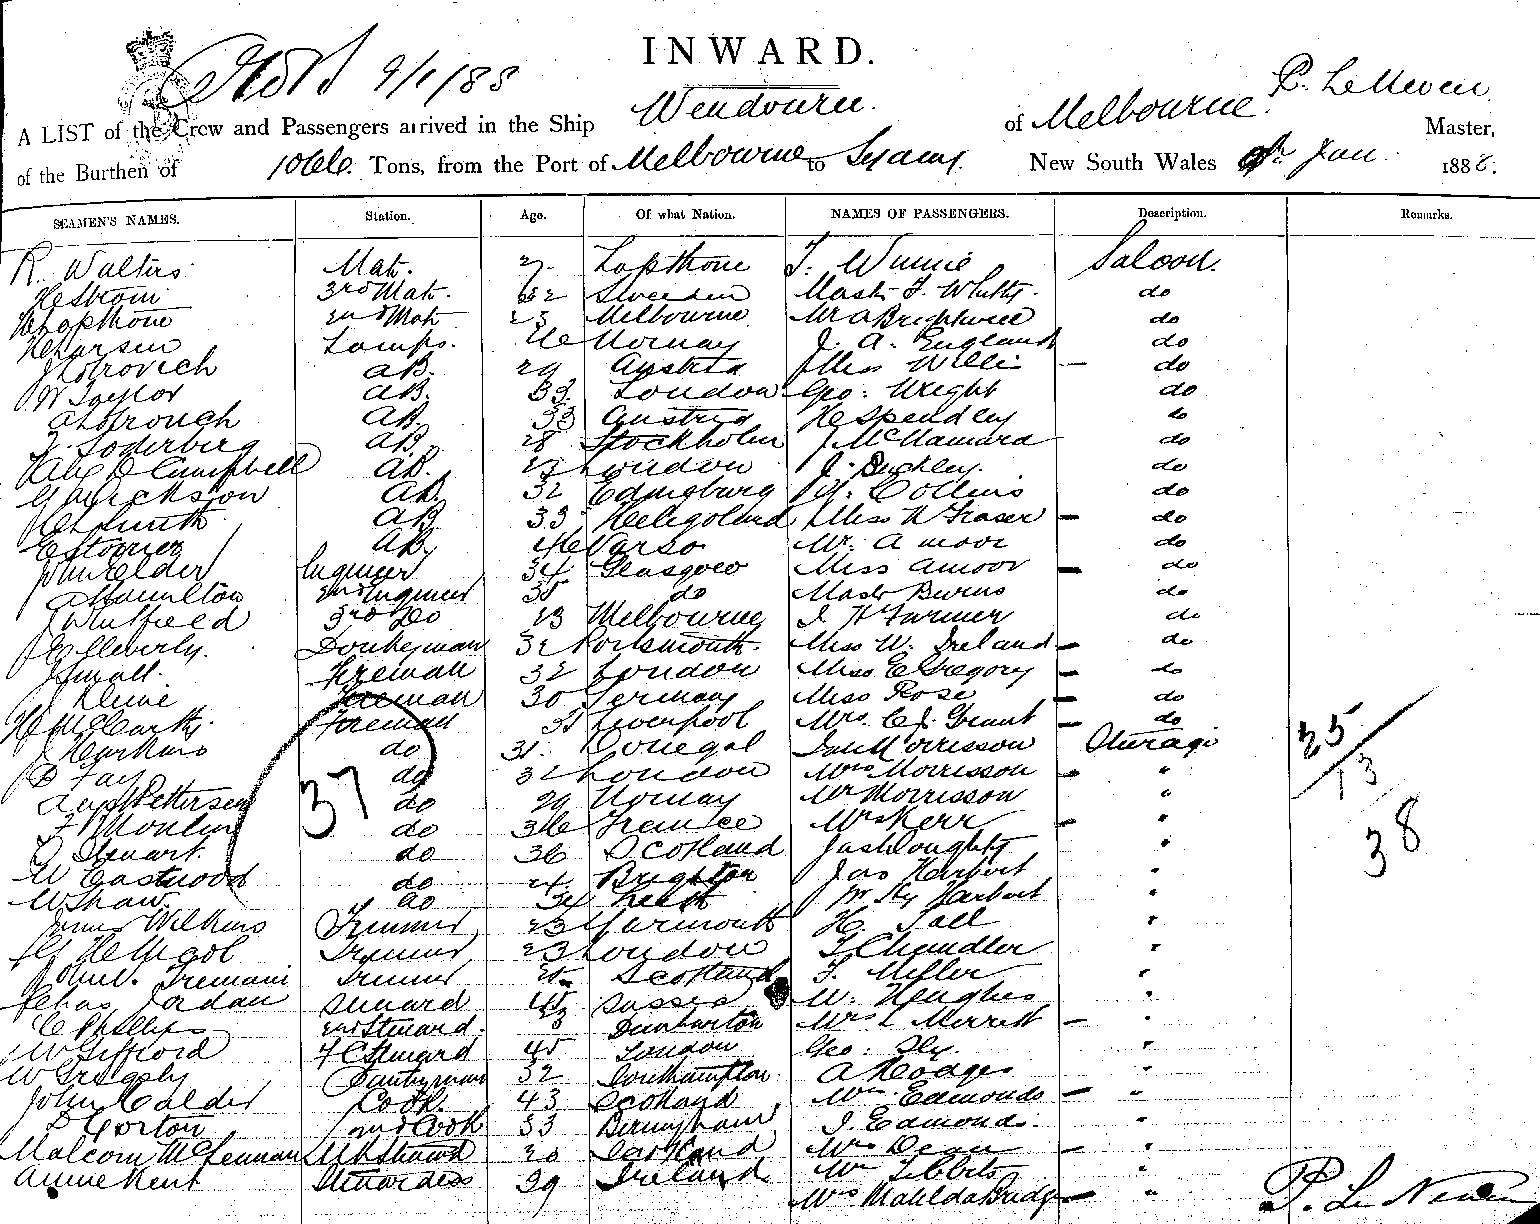 INWARD.
9/1/88
A LIST of the Crew and Passengers arrived in the Ship Wendouree of Melbourne P. Le Neven Master,
of the Burthen of 1066 Tons, from the Port of Melbourne to Sydney New South Wales 9th Jan. 1888.
SEAMEN'S NAMES. Station. Age. Of what Nation. NAMES OF PASSENGERS. Description. Remarks.
R. Walters Mate. 27 Lapthone T. Winnie Saloon.
Hestrom 3rd Mate. 32 Sweeden Mast. F. Whitty. do
Lapthone 2nd Mate 23 Melbourne Mr A Brightwell do
H Larsen Lamps. 26 Norway J. A. England do
AB. 29 Austria Miss Willis – do
W Taylor AB. 33 London Geo: Wright do
AB. 33 Austria H Spendley do
Soderberg AB. 28 Stockholm J McNamara do
Alex D Campbell AB. 23 London J. Buckley. do
G W Erickson AB. 32 Edingburg Collins do
Smith AB 33 Heligoland Miss N Fraser – do
AB, 46 Mr. A moor do
John Elder Engineer 34 Glasgow Miss Amoor – do
Hamilton 2nd Engineer 35 do Master Burns do
J Whitfield 3rd Do 23 Melbourne J H Farmer do
Cleverly. Donkeyman 32 Portsmouth. Miss W. Ireland – do
J Small. Fireman 32 London Miss E Gregory – do
J Kleine Fireman 30 Germany Miss Rose – do
H McCarthy Foreman Liverpool Mrs. C. J. Grant – do
J Harkins do 31. Donegal Morrisson Sterage 25
D Fay do 32 London Mrs Morrisson – " 13
Pettersen do 29 Norway Mr Morrisson "
37
F Moulin do 36 France Mrs Kerr – " 38
D Steuart. do 36 Scotland Doughty "
W Eastwood do 24. Brighton Jas Harbert "
W Shaw. do 34 Leith Harbert "
James Wilkins Trimmer, 23 Yarmouth H. Tall "
Trimmer 23 London T Chandler "
John. Tremain Trimmer Scotland F. Miller "
Chas Jordan Steward 45 Sussex W. Hughes "
C Phillips 2nd Steward. Dunbarton Mrs L Merrett – "
W Gifford F C Steward 45 London Geo: Sly. "
W Grigsby Pantryman 32 Southampton A Hodges "
John Calder Cook. 43 Scotland Mrs Edmonds – "
D Gorton 2nd Cook 33 Birmingham J. Edmonds. "
Malcom McLennan Steward 20 Scotland Mrs Dean – "
Annie Kent Stuardess 29 Ireland Mr Tibbits "
Mrs Matilda Budge – " P. Le Neven